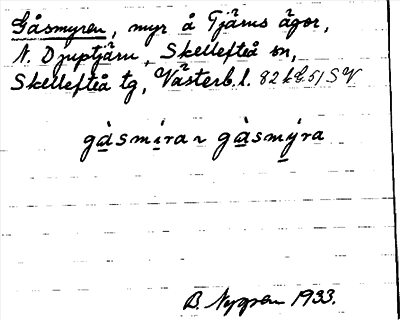 Gåsmyren, myr å Tjärns ägor,
N. Djuptjärn, Skellefteå sn,
Skellefteå tg, Västerb. l. 82 k G 5/ SV
gåsmira ~ gåsmýra
B. Nygren 1933.